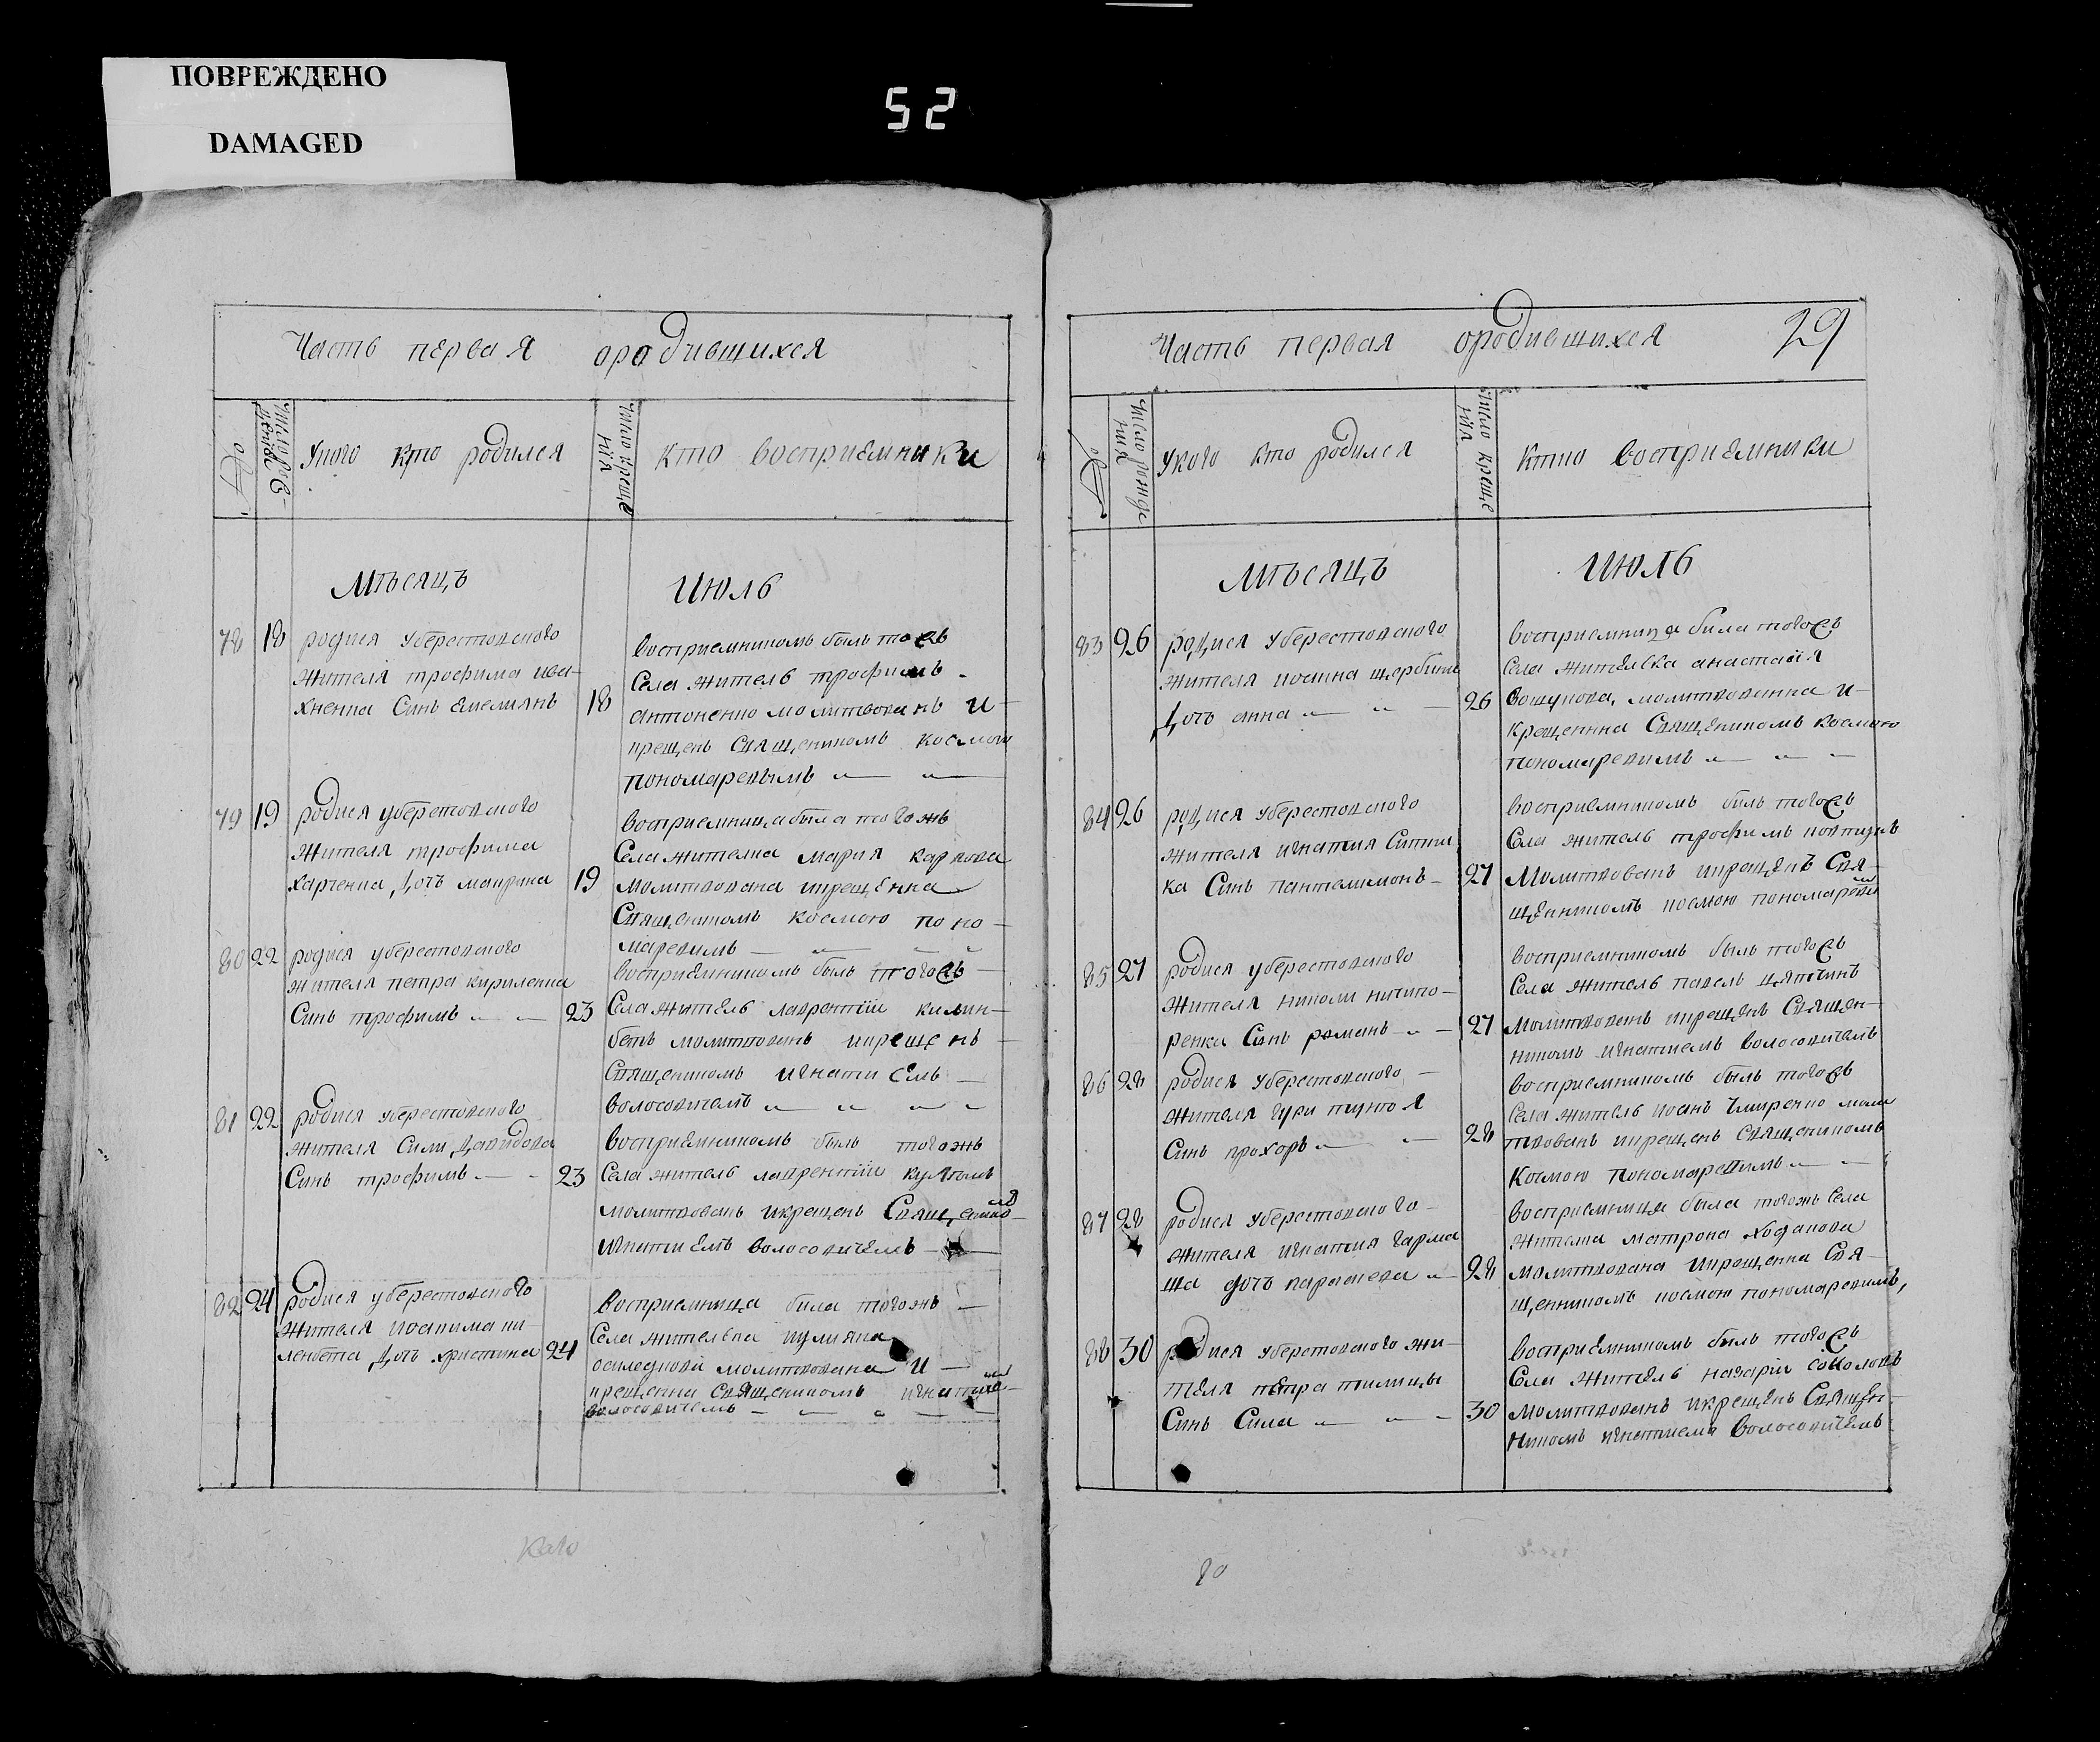 ПОВРЕЖДЕНО
DAMAGED
52
Часть первая ородившихся
Укого кто родился
Число креще
нїя
кто восприемники
Мѣсяцъ Июль
78 18 родися уберестовского
жителя трофима ива-
хненка Синъ Емелиянъ 18
восприемникомъ былъ тоежъ
Села житель трофимъ
антоненко молитвованъ и
крещенъ Священикомъ космою
пономаревымъ
79 19 родися уберестовского
жителя трофима
харченка дочъ маврина 19
восприемница была тогожъ
Села жителка мария карпова
молитвована икрещенна
Священикомъ космою поно-
маревимъ
80 22 родися уберестовского
жителя петра кириленка
Синъ трофимъ 23
восприемникомъ былъ тогожъ
Села житель лаврентїи
бетъ молитвованъ икрещенъ
Священикомъ игнатиемъ
волосовичемъ
81 22 родися уберестовского
жителя Сили давидова
Синъ трофимъ 23
восприемникомъ былъ тогожъ
Села житель лаврентїи
молитвованъ икрещенъ
игнатиемъ волосовичемъ
82 24 родися уберестовского
жителя иоакима ки-
ленбета дочъ христина 24
восприемница била тогожъ
Села жителка иулияна
молитвована и
крещенна Священикомъ
волосовичемъ
Часть первая ородившихся 29
Число рожде
ния
укого кто родился
Число креще
нїя
Ктио восприемники
Мѣсяцъ Июль
83 26 родися уберестовского
жителя иоанна щербини
Дочъ анна 26
восприемница била тогожъ
Села жителка анастасїя
молитвованна и
крещенна Священикомъ космою
пономаревимъ
84 26 родися уберестовского
жителя игнатия Ситни
ка Синъ пантелимонъ 27
восприемникомъ билъ тогожъ
Села житель трофимъ
Молитвованъ икрещенъ Свя-
щенникомъ космою
85 27 родися уберестовского
жителя николи ничипо-
ренка Синъ романъ 27
восприемникомъ былъ тогожъ
Села житель павелъ
Молитвованъ икрещенъ Священ-
никомъ игнатиемъ волосовичемъ
86 28 родися уберестовского
жителя гури
Синъ прохоръ 28
восприемникомъ былъ тогожъ
Села житель иоанъ моли
твованъ икрещенъ Священикомъ
Космою пономаревимъ
87 28 родися уберестовского
жителя игнатия гарма
ша дочъ параскева 28
восприемница была тогожъ Села
жителка матрона ходакова
молитвована икрещенна Свя-
щенникомъ космою пономаревимъ,
88 30 родися уберестовского жи-
теля петра тилици
Синъ Сила 30
восприемникомъ былъ тогожъ
Села житель назарїи соколовъ
молитвованъ икрещенъ Священ-
никомъ игнатиемъ волосовичемъ